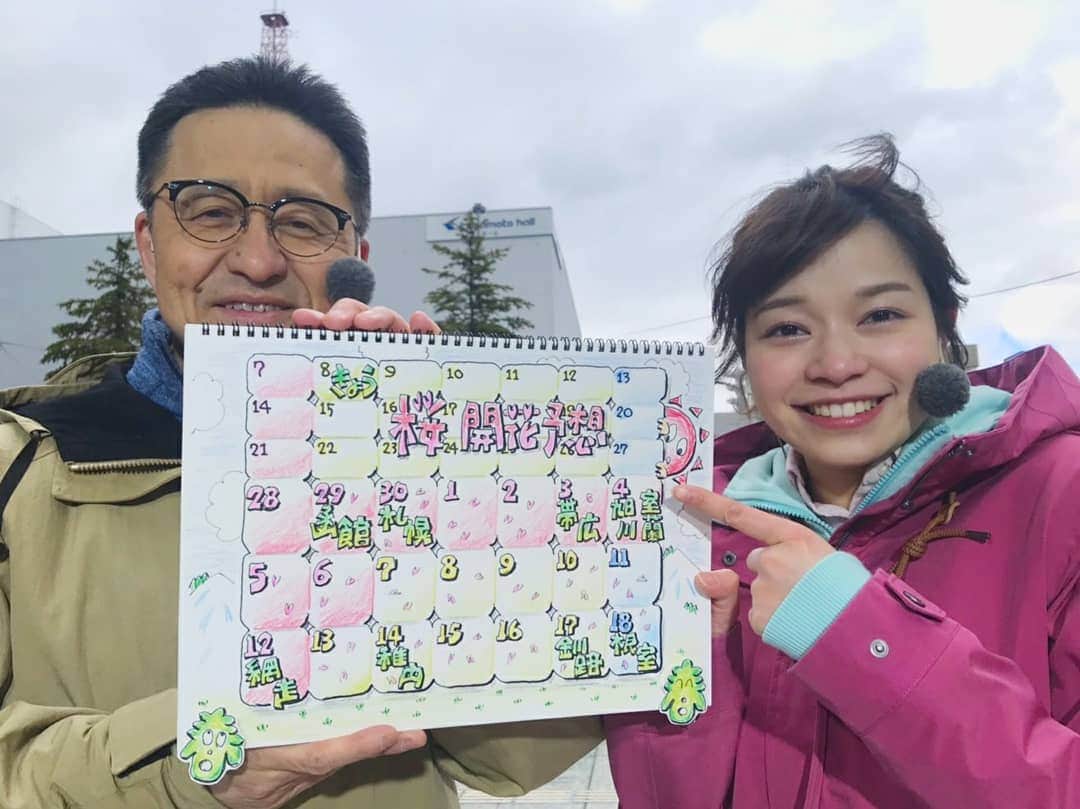 moto hall
7 8 きょう 9 10 11 12 13
14 15 16 17 19 20
桜開花予想
21 22 23 24 25 26 27
28 29 函館 30 札幌 1 2 3 帯広 4 旭川 室蘭
5 6 7 8 9 10 11
12 網走 13 14 稚内 15 16 17 釧路 18 根室